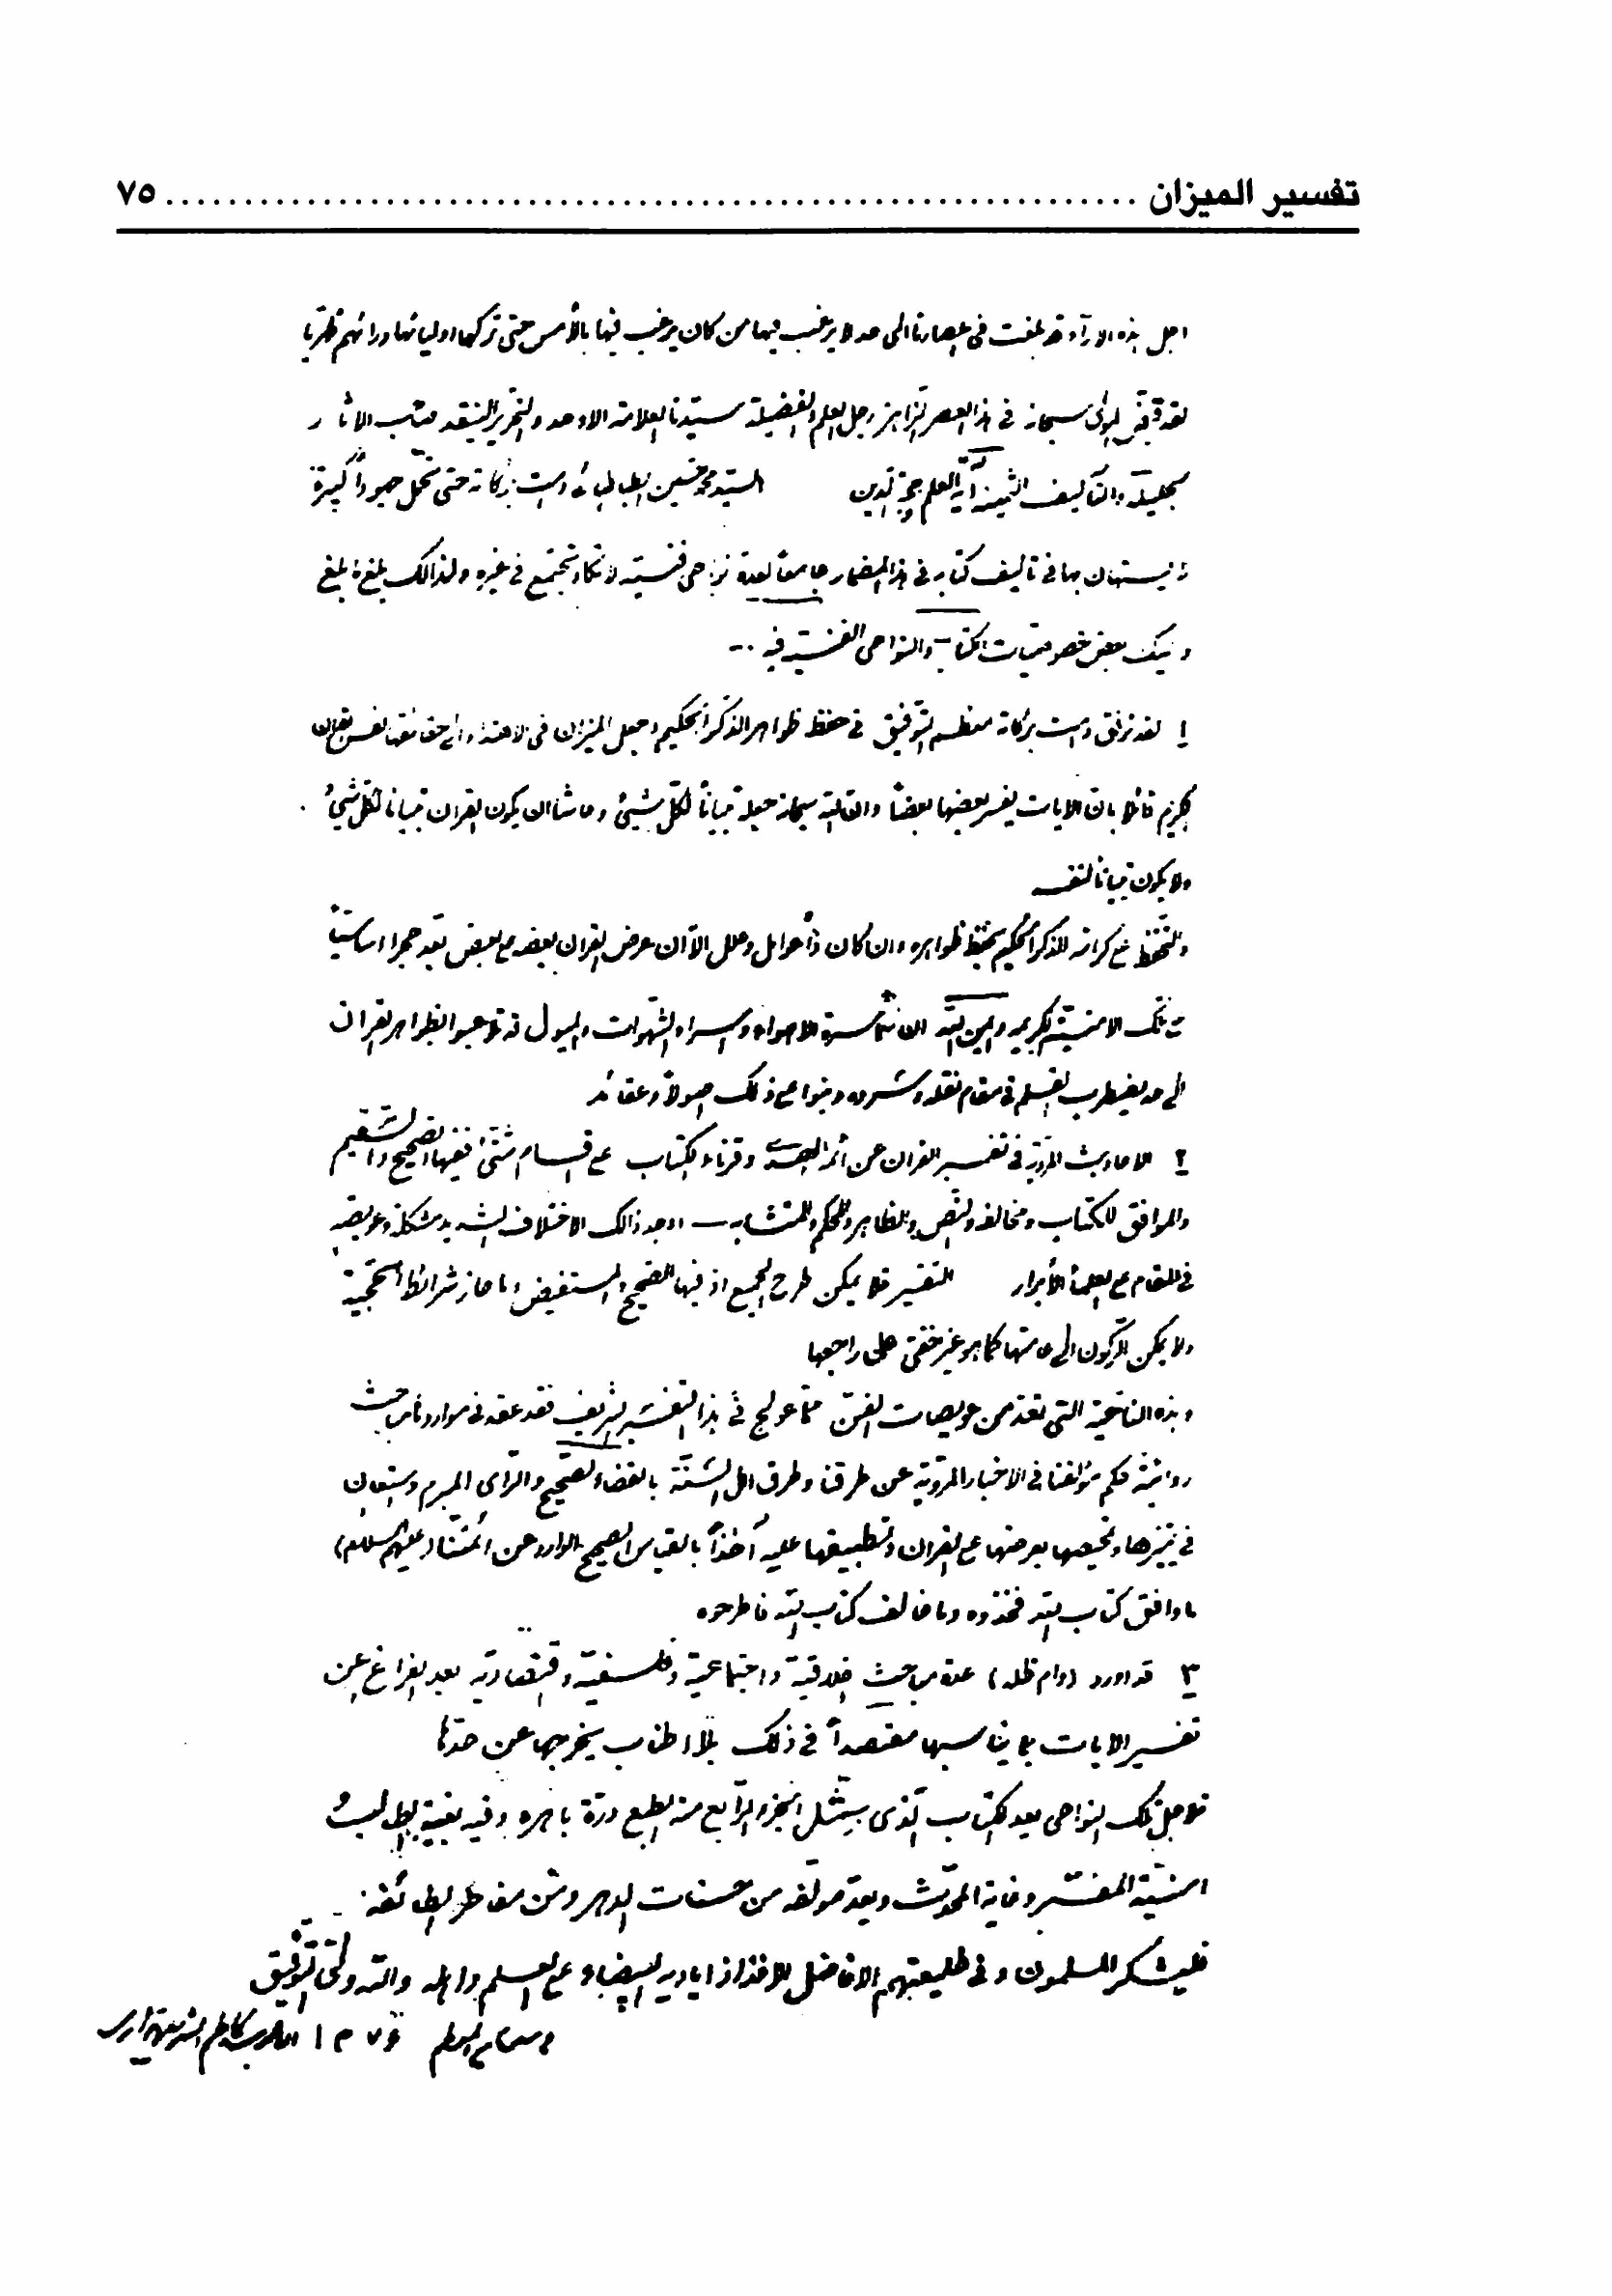 تفسير الميزان ........ ٧٥
اجل هذه الاراء قد بلغت فى اعصارنا الى حد لا يرغب فيها من كان يرغب فيها بالأمس حتى تركها اوليائها ورائهم ظهريا
لقد قيض المولى سبحانه فى هذا العصر الزاهر رجل العلم والفضيلة سيدنا العلامة الاوحد والنحرير المنيقد صاحب الاثار
الجليلة والتآليف الثمينة آية العلم وحجة الدين السيد محمد حسين الطباطبائى دامت بركاته حتى تحمل جهوداً كبيرة
لا يستهان بها فى تاليف كتابه فى هذا المضمار جامعاً لعدة نواحى فنية لا تكاد تجتمع فى غيره ولذالك بلغ ما بلغ
واليك بعض خصوصيات الكتاب والنواحى الفنية فيه ..
١ لقد توفق دامت بركاته معظم التوفيق فى حفظ ظواهر الذكر الحكيم وجعل الميزان فى الاهتداء الى حقائقها نفس القران
الكريم قائلا بان الايات يفسر بعضها بعضاً وان الله سبحانه جعله تبياناً لكل شيئ وحاشا ان يكون القران تبيانا لكل شيئ .
ولا يكون تبياناً لنفسه
والتحفظ على كرامة الذكر الحكيم بحفظ ظواهره وان كان ذا عوامل وعلل الا ان عرض القران بعضه مع بعض يعد حجرا اساسياً
من تلك الامنية الكريمة وايمن الله ان سماسرة الاهواء واسراء الشهوات والميول قد تلاعبوا بظواهر القران
الى حد يضطرب القلم فى مقام نقله وسرده وبنوا على ذلك اصولاً وعقائد
٢ الاحاديث المروية فى تفسير القران عن ائمة الهدى وقرناء الكتاب على اقسام شتى ففيها الصحيح والسقيم
والموافق للكتاب ومخالفه والنص والظاهر والمحكم والمتشابه اوجد ذالك الاختلاف الشديد مشكلة وعويصة
فى المقام على العلماء الأبرار التفسير فلا يمكن طرح الجميع اذ فيها الصحيح والمستفيض وما حاز شرائط الحجية
ولا يمكن الركون الى عامتها كما هو غير خفى على راجعها
وهذه الناحية التى تعد من عويصات الفن مما عولج فى هذا التفسير الشريف فقد عقد فى موارد مباحث
روائية حكم مؤلفنا فى الاخبار المروية عن طرقنا وطرق اهل السنة بالقضاء الصحيح والراى المبرم واستعان
فى تمييزها وتمحيصها بعرضها على القران وتطبيقها عليه أخذاً بالقياس الصحيح الوارد عن ائمتنا (عليهم السلام)
ما وافق كتاب الله فخذوه وما خالف كتاب الله فاطرحوه
٣ قد اورد (دام ظله) عدة مباحث اخلاقية واجتماعية وفلسفية واقتصادية بعد الفراغ عن
تفسير الايات بما يناسبها مقتصداً فى ذلك بلا اطناب يخرجها عن حدها
فلاجل تلك النواحى يعد الكتاب الذى سيمثل الجزء الرابع منه الطبع درة باهرة وفيه بغية الطالب
امنية المفسر وغاية المحدث ويعد مولفه من حسنات الدهر ومن مفاخر الطائفة .
فليشكر المسلمون وفى طليعتهم الافاضل الافذاذ اياديه البيضاء على العلم واهله والله ولى التوفيق
١٣٧٦ كاظم